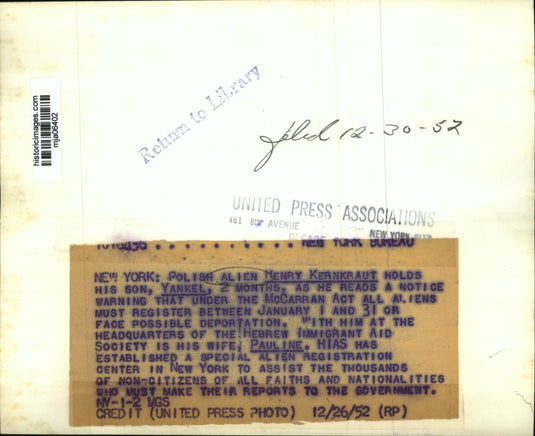 historicimages.com
mja06402
Return to Library
filed 12-30-52
UNITED PRESS ASSOCIATIONS
461 AVENUE
NEW YORK
. . . . . . . . . . . NEW YORK BUREAU
NEW YORK: POLISH ALIEN HENRY KERNKRAUT HOLDS
HIS SON, YANKEL, 2 MONTHS, AS HE READS A NOTICE
WARNING THAT UNDER THE MCCARRAN ACT ALL ALIENS
MUST REGISTER BETWEEN JANUARY 1 AND 31 OR
FACE POSSIBLE DEPORTATION. WITH HIM AT THE
HEADQUARTERS OF THE HEBREW IMMIGRANT AID
SOCIETY IS HIS WIFE, PAULINE. HIAS HAS
ESTABLISHED A SPECIAL ALIEN REGISTRATION
CENTER IN NEW YORK TO ASSIST THE THOUSANDS
OF NON-CITIZENS OF ALL FAITHS AND NATIONALITIES
WHO MUST MAKE THEIR REPORTS TO THE GOVERNMENT.
NY-1-2 MGS
CREDIT (UNITED PRESS PHOTO) 12/26/52 (RP)